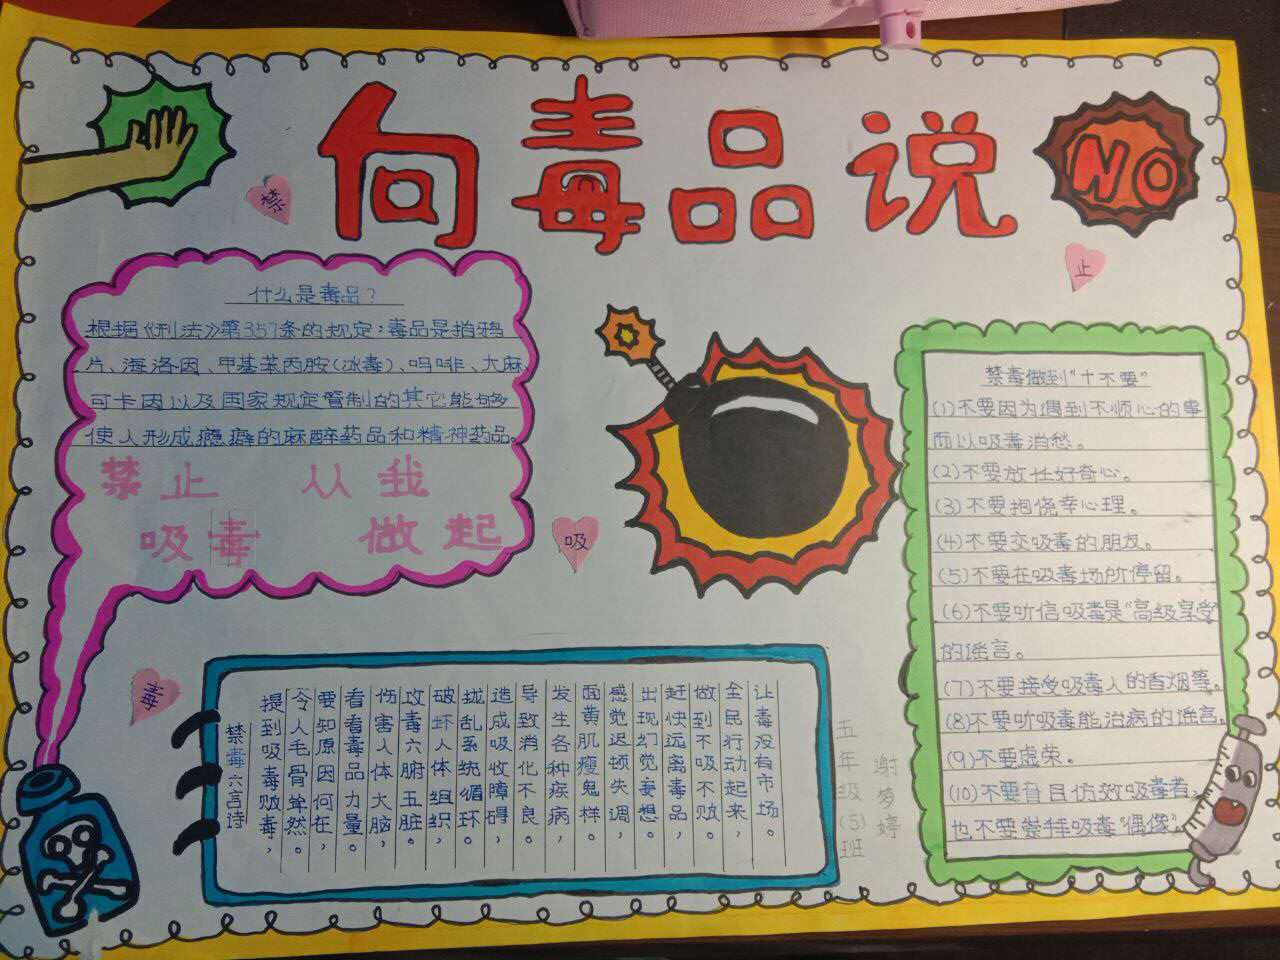 向毒品说
NO
禁
止
吸
毒
什么是毒品？
根据《刑法》第357条的规定：毒品是指鸦
片、海洛因、甲基苯丙胺(冰毒)、吗啡、大麻、
可卡因以及国家规定管制的其它能够
使人形成瘾癖的麻醉药品和精神药品。
禁止 从我
吸毒 做起
禁毒做到“十不要”
(1)不要因为遇到不顺心的事
而以吸毒消愁。
(2)不要放任好奇心。
(3)不要抱侥幸心理。
(4)不要交吸毒的朋友。
(5)不要在吸毒场所停留。
(6)不要听信吸毒是“高级享受”
的谣言。
(7)不要接受吸毒人的香烟等。
(8)不要听吸毒能治病的谣言。
(9)不要虚荣。
(10)不要盲目仿效吸毒者，
也不要崇拜吸毒“偶像”。
禁毒六言诗
提到吸毒贩毒，
令人毛骨耸然。
要知原因何在，
看看毒品力量。
伤害人体大脑，
攻毒六腑五脏。
破坏人体组织，
扰乱系统循环。
造成吸收障碍，
导致消化不良。
发生各种疾病，
面黄肌瘦鬼样。
感觉迟顿失调，
出现幻觉妄想。
赶快远离毒品，
做到不吸不败。
全民行动起来，
让毒没有市场。
五年级(5)班
谢梦婷